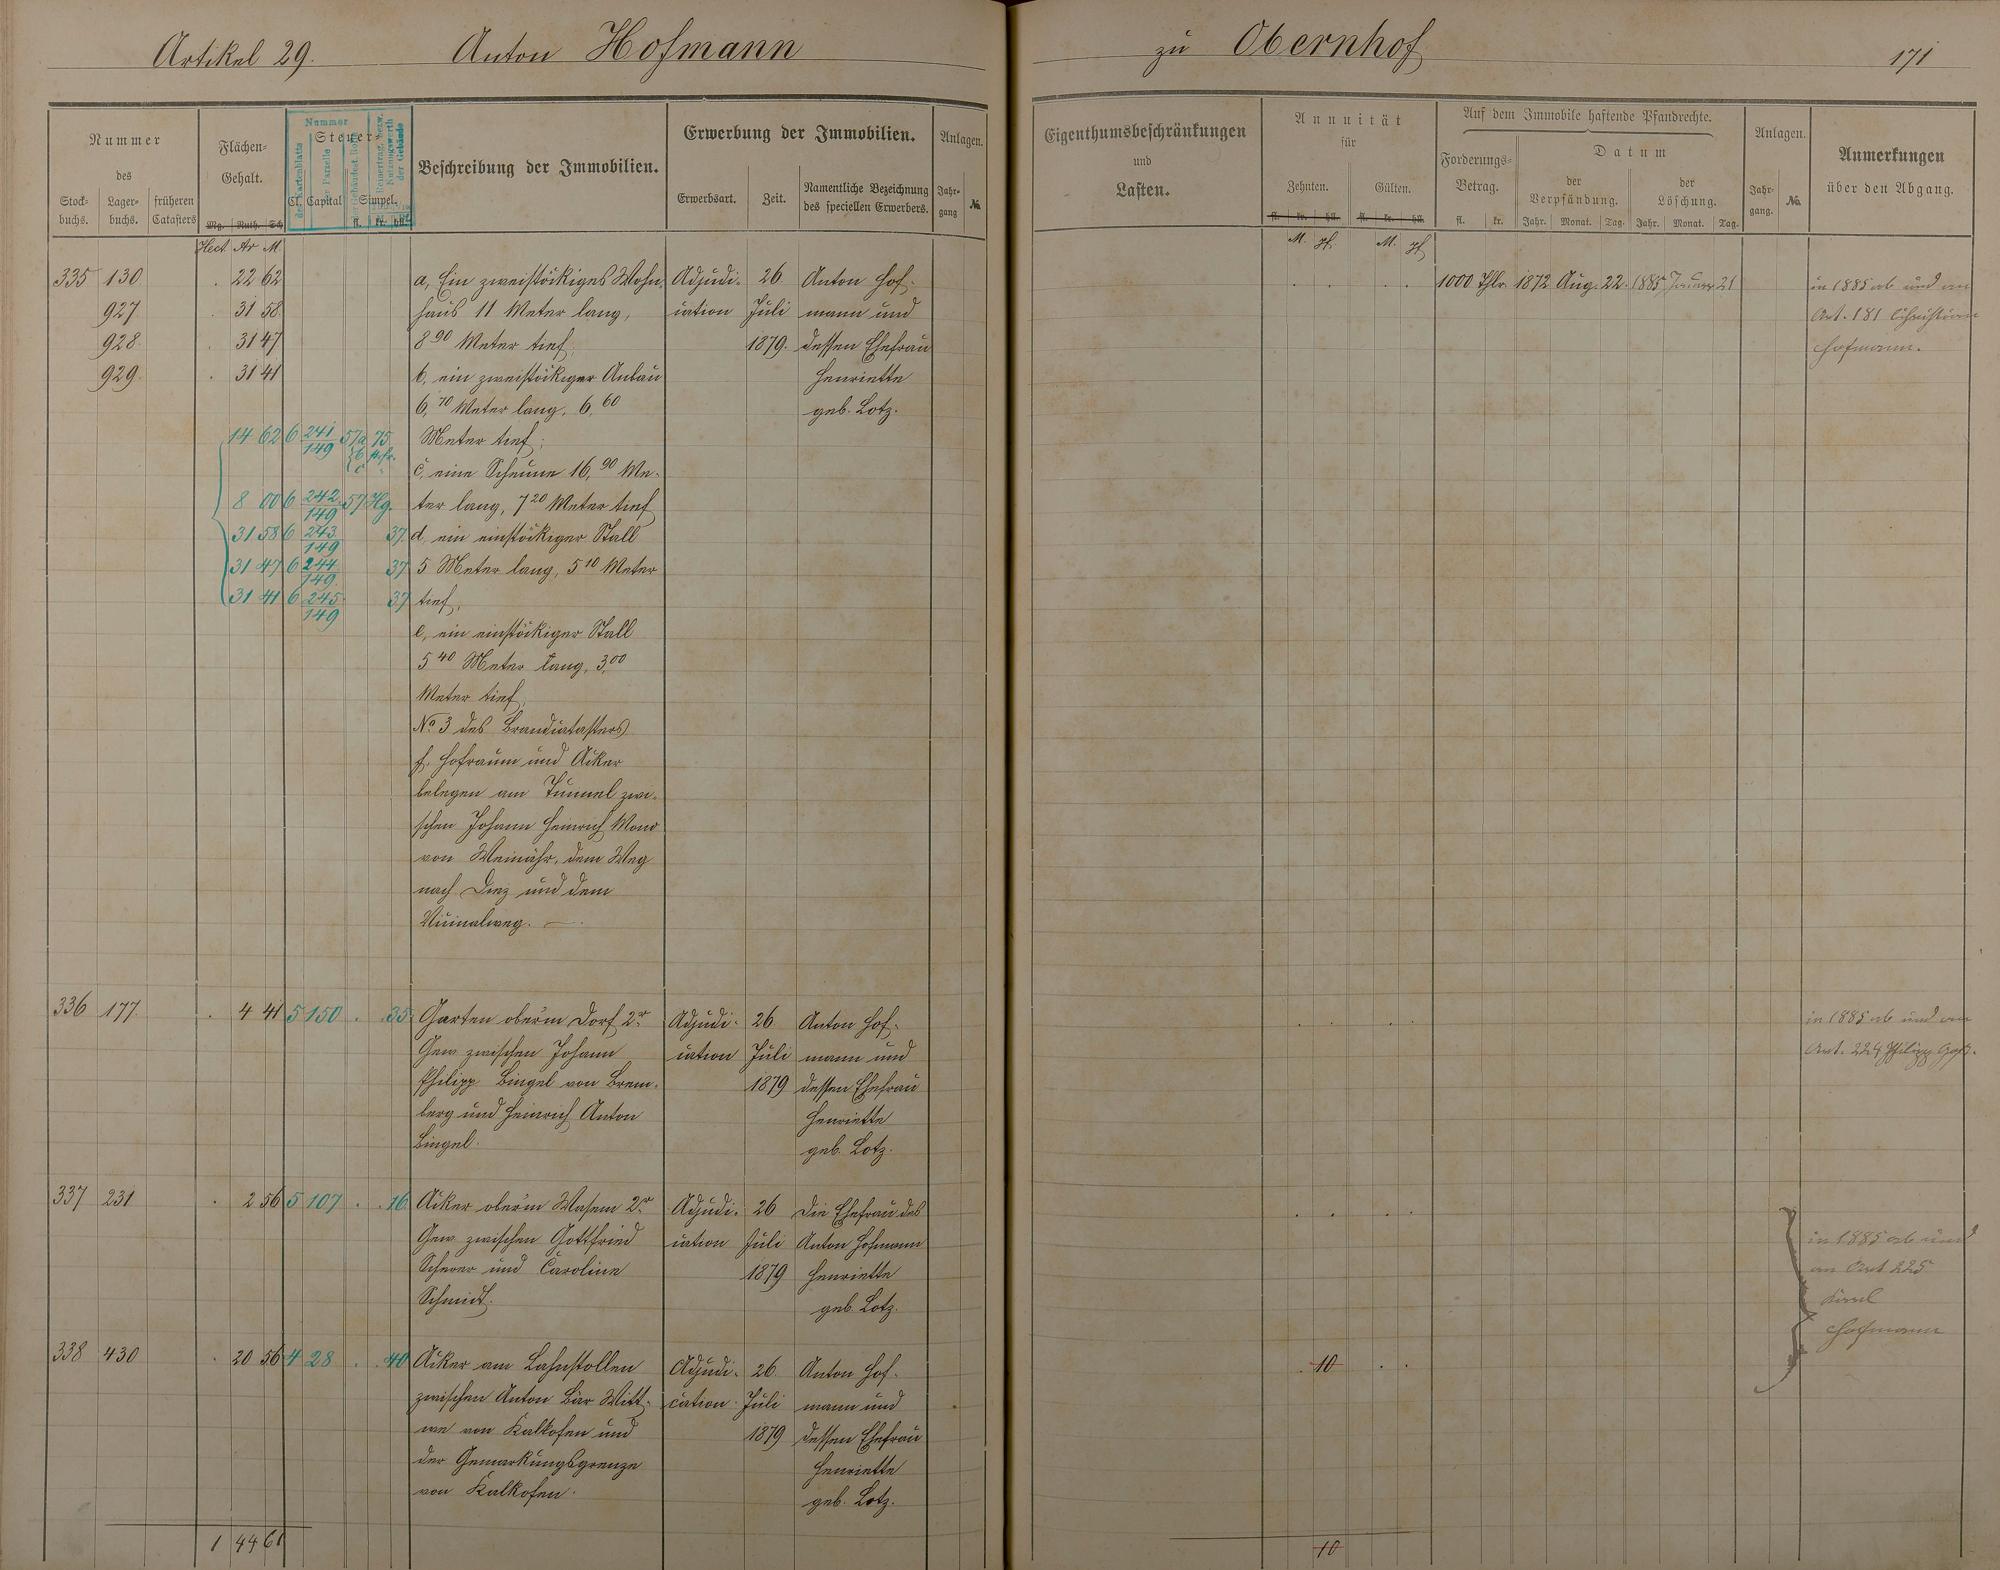 Artikel 29. Anton Hofmann
zu Obernhof 171
Nummer
des
Stock-buchs. Lager-buchs. früheren Catasters
Flächen-Gehalt.
Mg. Ruth. Sch
Steuer-
Cl. Capital Simpel.
fl. kr. hll.
Nummer
des Kartenblatts
der Parzelle
Beschreibung der Immobilien.
Erwerbung der Immobilien.
Erwerbsart. Zeit. Namentliche Bezeichnung des speciellen Erwerbers.
Anlagen.
Jahr-gang №
Eigenthumsbeschränkungen
und
Lasten.
Annuität
für
Zehnten. Gülten.
fl. kr. hll. fl. kr. hll.
Auf dem Immobile haftende Pfandrechte.
Forderungs-Betrag.
fl. kr.
Datum
der Verpfändung. der Löschung.
Jahr. Monat. Tag. Jahr. Monat. Tag.
Anlagen.
Jahr-gang. №
Anmerkungen
über den Abgang.
Hect Ar M
M. Pf. M. Pf.
335 130. 22 62 a, Ein zweistöckiges Wohn- Adjudi- 26 Anton Hof- 1000 Thlr. 1872 Aug. 22. 1885 Januar 21 in 1885 ab und an
927 31 58 haus 11 Meter lang, cation Juli mann und Art. 181 Christian
928 31 47 8 90 Meter tief; 1879. dessen Ehefrau Hofmann.
929 31 41 b, ein zweistöckiger Anbau Henriette
6,70 Meter lang, 6,60 geb. Lotz.
14 62 6 241/149 57a 75 Meter tief;
b
c c, eine Scheune 16,90 Me-
8 00 6 242/149 57 Hg. ter lang, 7 20 Meter tief
31 58 6 243/149 37. d, ein einstöckiger Stall
31 47 6 244/149 37 5 Meter lang, 5 10 Meter
31 41 6 245/149 37 tief,
e, ein einstöckiger Stall
5 40 Meter lang, 3,00
Meter tief,
No 3 des Brandcatasters
f. Hofraum und Acker
belegen am Tunnel zwi-
schen Johann Heinrich
von Weinähr, dem Weg
nach Diez und dem
Vicinalweg. —
336 177. 4 41 5 150 . . 35. Garten oberm Dorf 2r Adjudi- 26 Anton Hof- in 1885 ab und an
Gew zwischen Johann cation Juli mann und Art. 224 Philipp
Philipp Bingel von Brem- 1879 dessen Ehefrau
berg und Heinrich Anton Henriette
Bingel. geb. Lotz.
337 231 2 56 5 107 . . 16. Acker oberm Wasem 2r Adjudi- 26 Die Ehefrau des
Gew zwischen Gottfried cation Juli Anton Hofmann in 1885 ab und
Scherer und Caroline 1879 Henriette an Art 225
Schmidt. geb. Lotz. Karl
Hofmann
338 430 20 56 4 28 . . 40 Acker am Lahnstollen Adjudi- 26 Anton Hof- 10
zwischen Anton Bär Witt- cation Juli mann und
we von Kalkofen und 1879 dessen Ehefrau
der Gemarkungsgrenze Henriette
von Kalkofen. geb. Lotz.
1 44 61
10